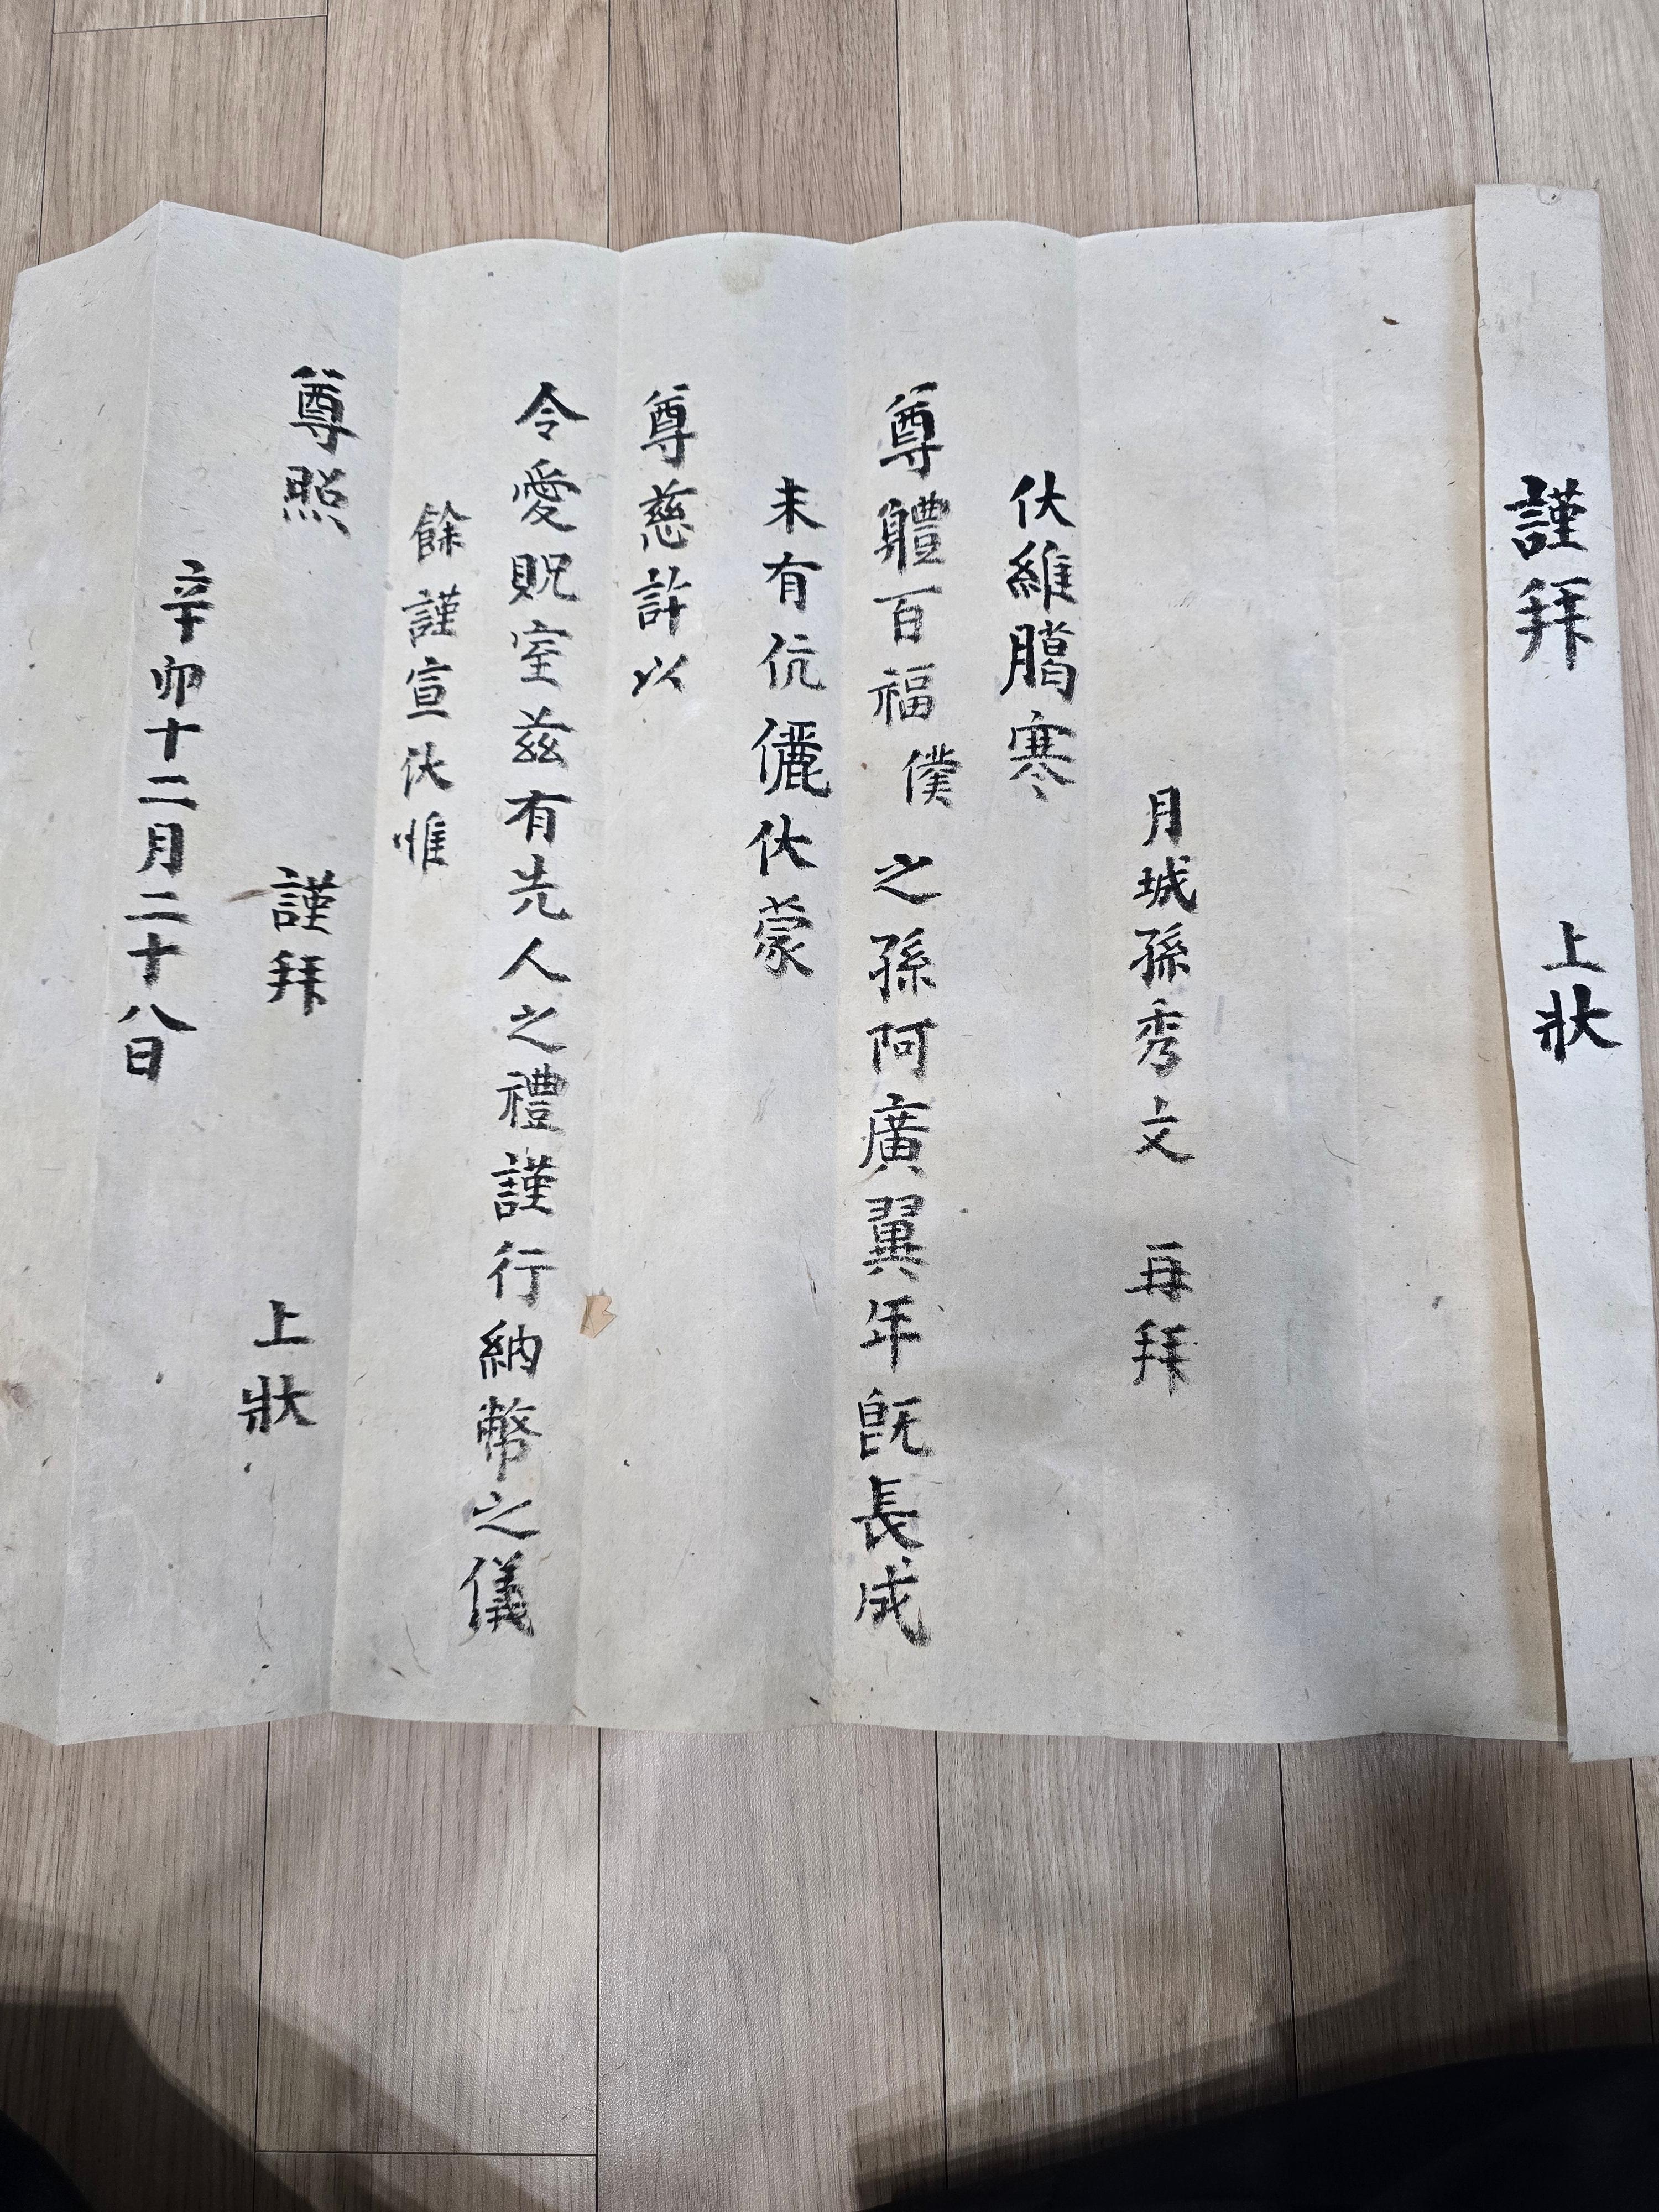 謹拜 上狀
月城孫秀文 再拜
伏維臘寒
尊體百福僕之孫阿廣翼年旣長成
未有伉儷伏蒙
尊慈許以
令愛貺室玆有先人之禮謹行納幣之儀
餘謹宣伏惟
尊照 謹拜 上狀
辛卯十二月二十八日